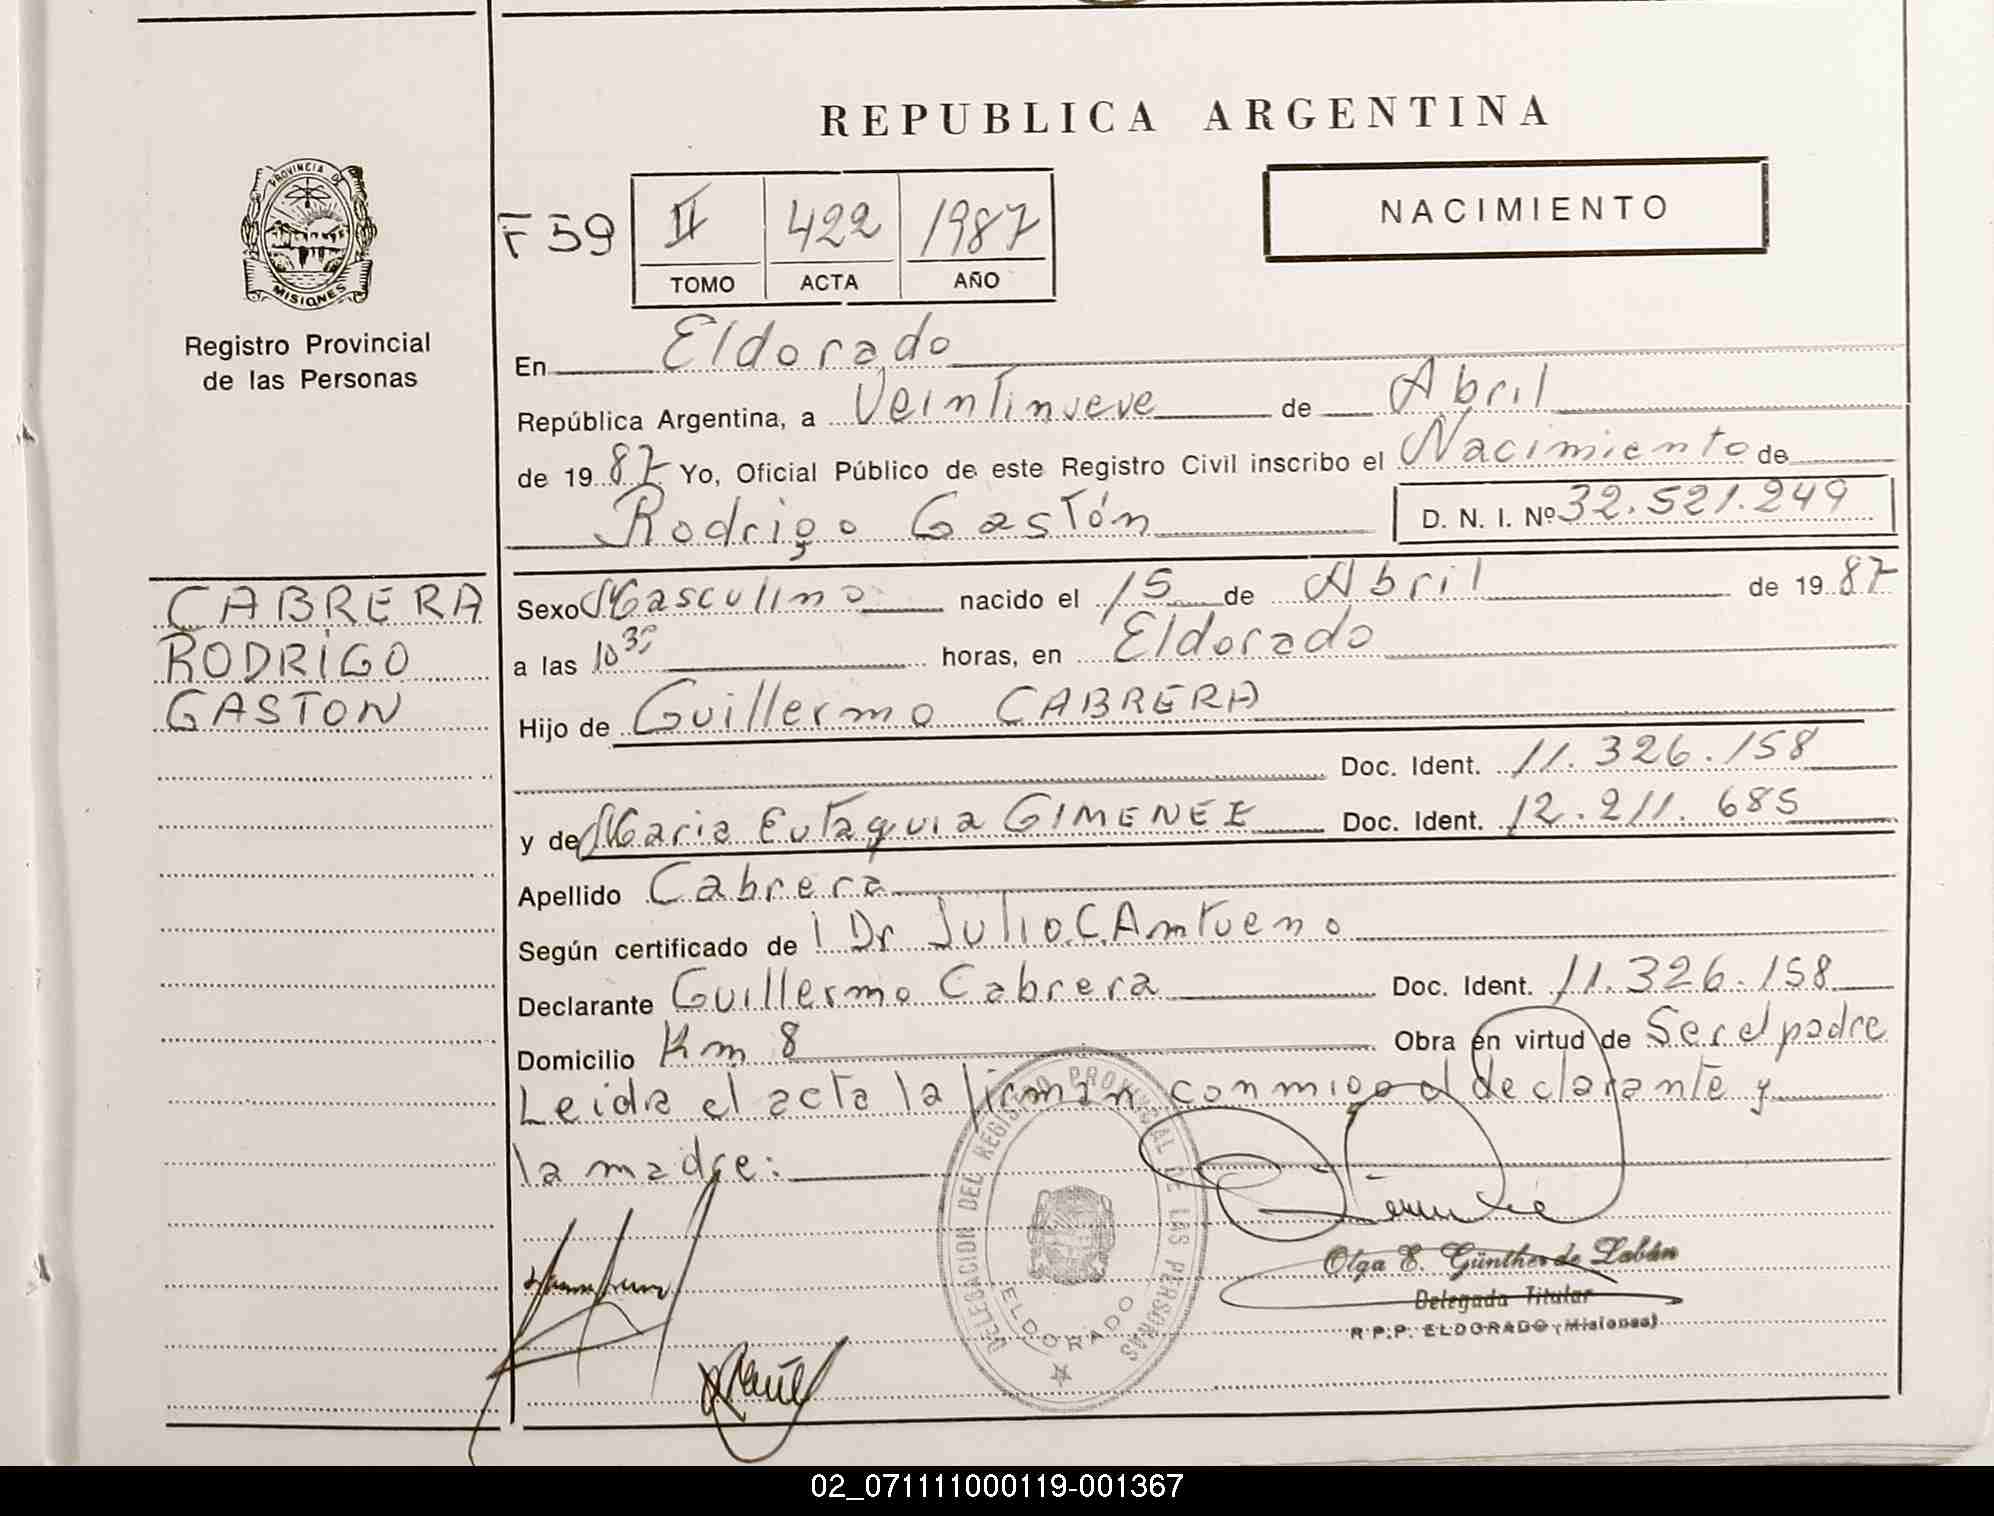 REPUBLICA ARGENTINA
PROVINCIA DE
MISIONES
Registro Provincial
de las Personas
F 59
II 422 1987
TOMO ACTA AÑO
NACIMIENTO
En Eldorado
República Argentina, a Veintinueve de Abril
de 1987 Yo, Oficial Público de este Registro Civil inscribo el Nacimiento de
Rodrigo Gastón D. N. I. Nº 32.521.249
CABRERA
RODRIGO
GASTON
Sexo Masculino nacido el 15 de Abril de 1987
a las 10 30 horas, en Eldorado
Hijo de Guillermo CABRERA
Doc. Ident. 11.326.158
y de Maria Eutaquia GIMENEZ Doc. Ident. 12.211.685
Apellido Cabrera
Según certificado de Dr Julio C.
Declarante Guillermo Cabrera Doc. Ident. 11.326.158
Domicilio Km 8 Obra en virtud de Ser el padre
Leida el acta la firman conmigo el declarante y
la madre:
DELEGACION DEL REGISTRO PROVINCIAL DE LAS PERSONAS
ELDORADO
Olga E. Günther de Labán
Delegada Titular
R.P.P. ELDORADO (Misiones)
02_071111000119-001367